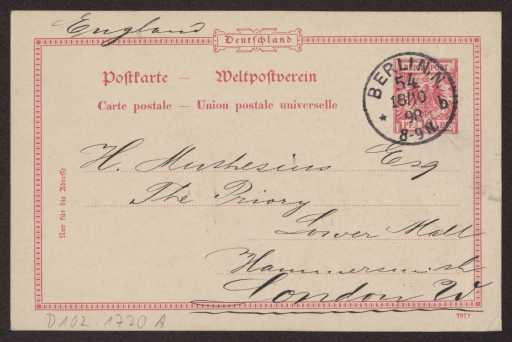 England
Deutschland
Postkarte — Weltpostverein
Carte postale — Union postale universelle
BERLIN.N
54
b
18/10
98
8-9N.
*
H. Muthesius Esq
The Priory
Lower Mall
Hammersmith
London W
Nur für die Adresse
D102-1770 A